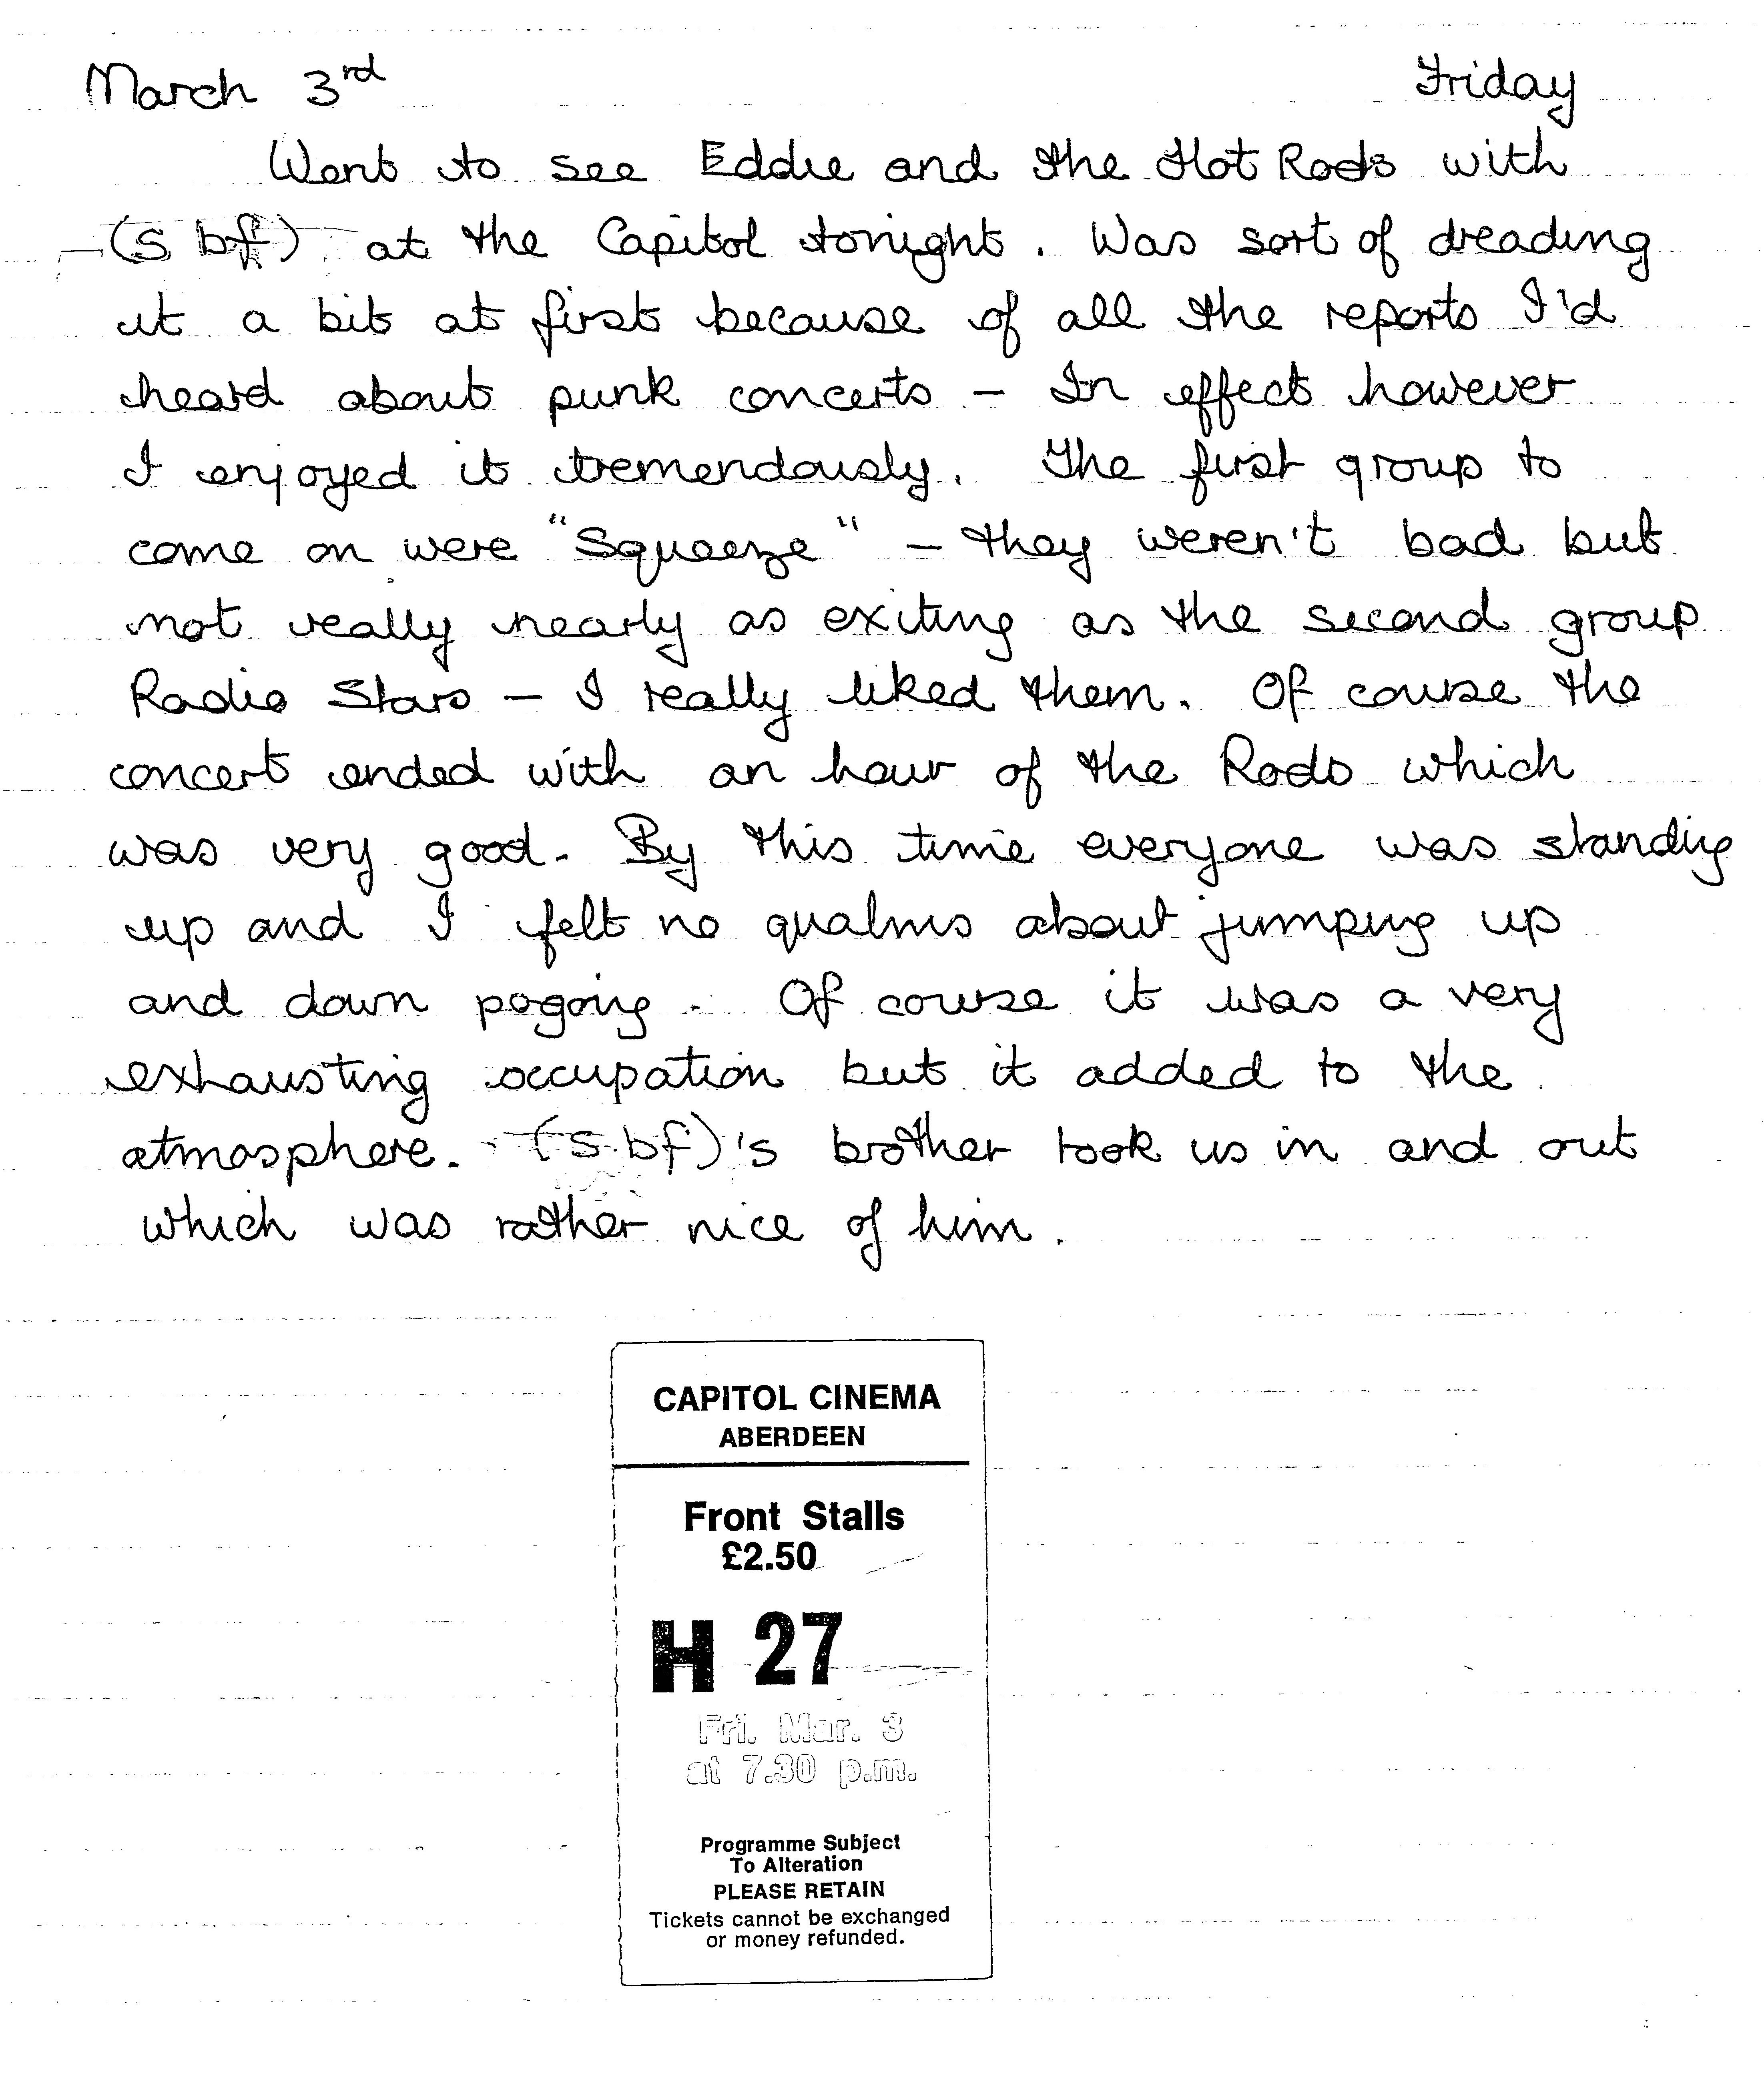 March 3rd Friday
Went to see Eddie and the Hot Rods with
(s bf) at the Capitol tonight. Was sort of dreading
it a bit at first because of all the reports I'd
heard about punk concerts - In effect however
I enjoyed it tremendously. The first group to
come on were "Squeeze" - they weren't bad but
not really nearly as exiting as the second group
Radio Stars - I really liked them. Of course the
concert ended with an hour of the Rods which
was very good. By this time everyone was standing
up and I felt no qualms about jumping up
and down pogoing. Of course it was a very
exhausting occupation but it added to the
atmosphere. (s bf)'s brother took us in and out
which was rather nice of him.
CAPITOL CINEMA
ABERDEEN
Front Stalls
£2.50
H 27
Fri. Mar. 3
at 7.30 p.m.
Programme Subject
To Alteration
PLEASE RETAIN
Tickets cannot be exchanged
or money refunded.